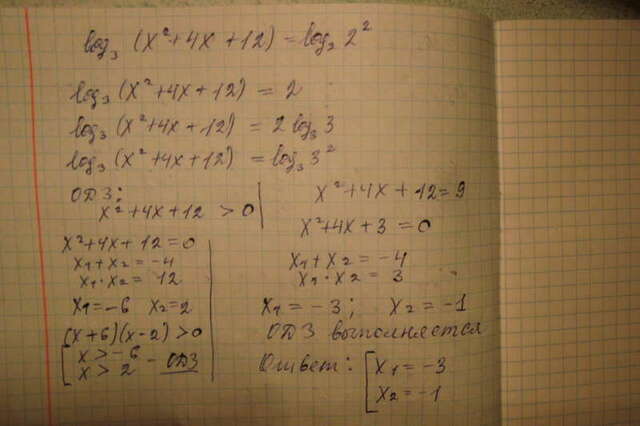 log₃ (x²+4x+12) = log₂ 2²
log₃ (x²+4x+12) = 2
log₃ (x²+4x+12) = 2 log₃ 3
log₃ (x²+4x+12) = log₃ 3²
ОДЗ:
x²+4x+12 > 0
x²+4x+12=0
x₁+x₂=-4
x₁·x₂= 12
x₁=-6 x₂=2
(x+6)(x-2)>0
[ x>-6
x> 2 - ОДЗ
x²+4x+12=9
x²+4x+3 =0
x₁+x₂ = -4
x₁·x₂ = 3
x₁ = -3; x₂ = -1
ОДЗ выполняется
Ответ: [ x₁ = -3
x₂ = -1